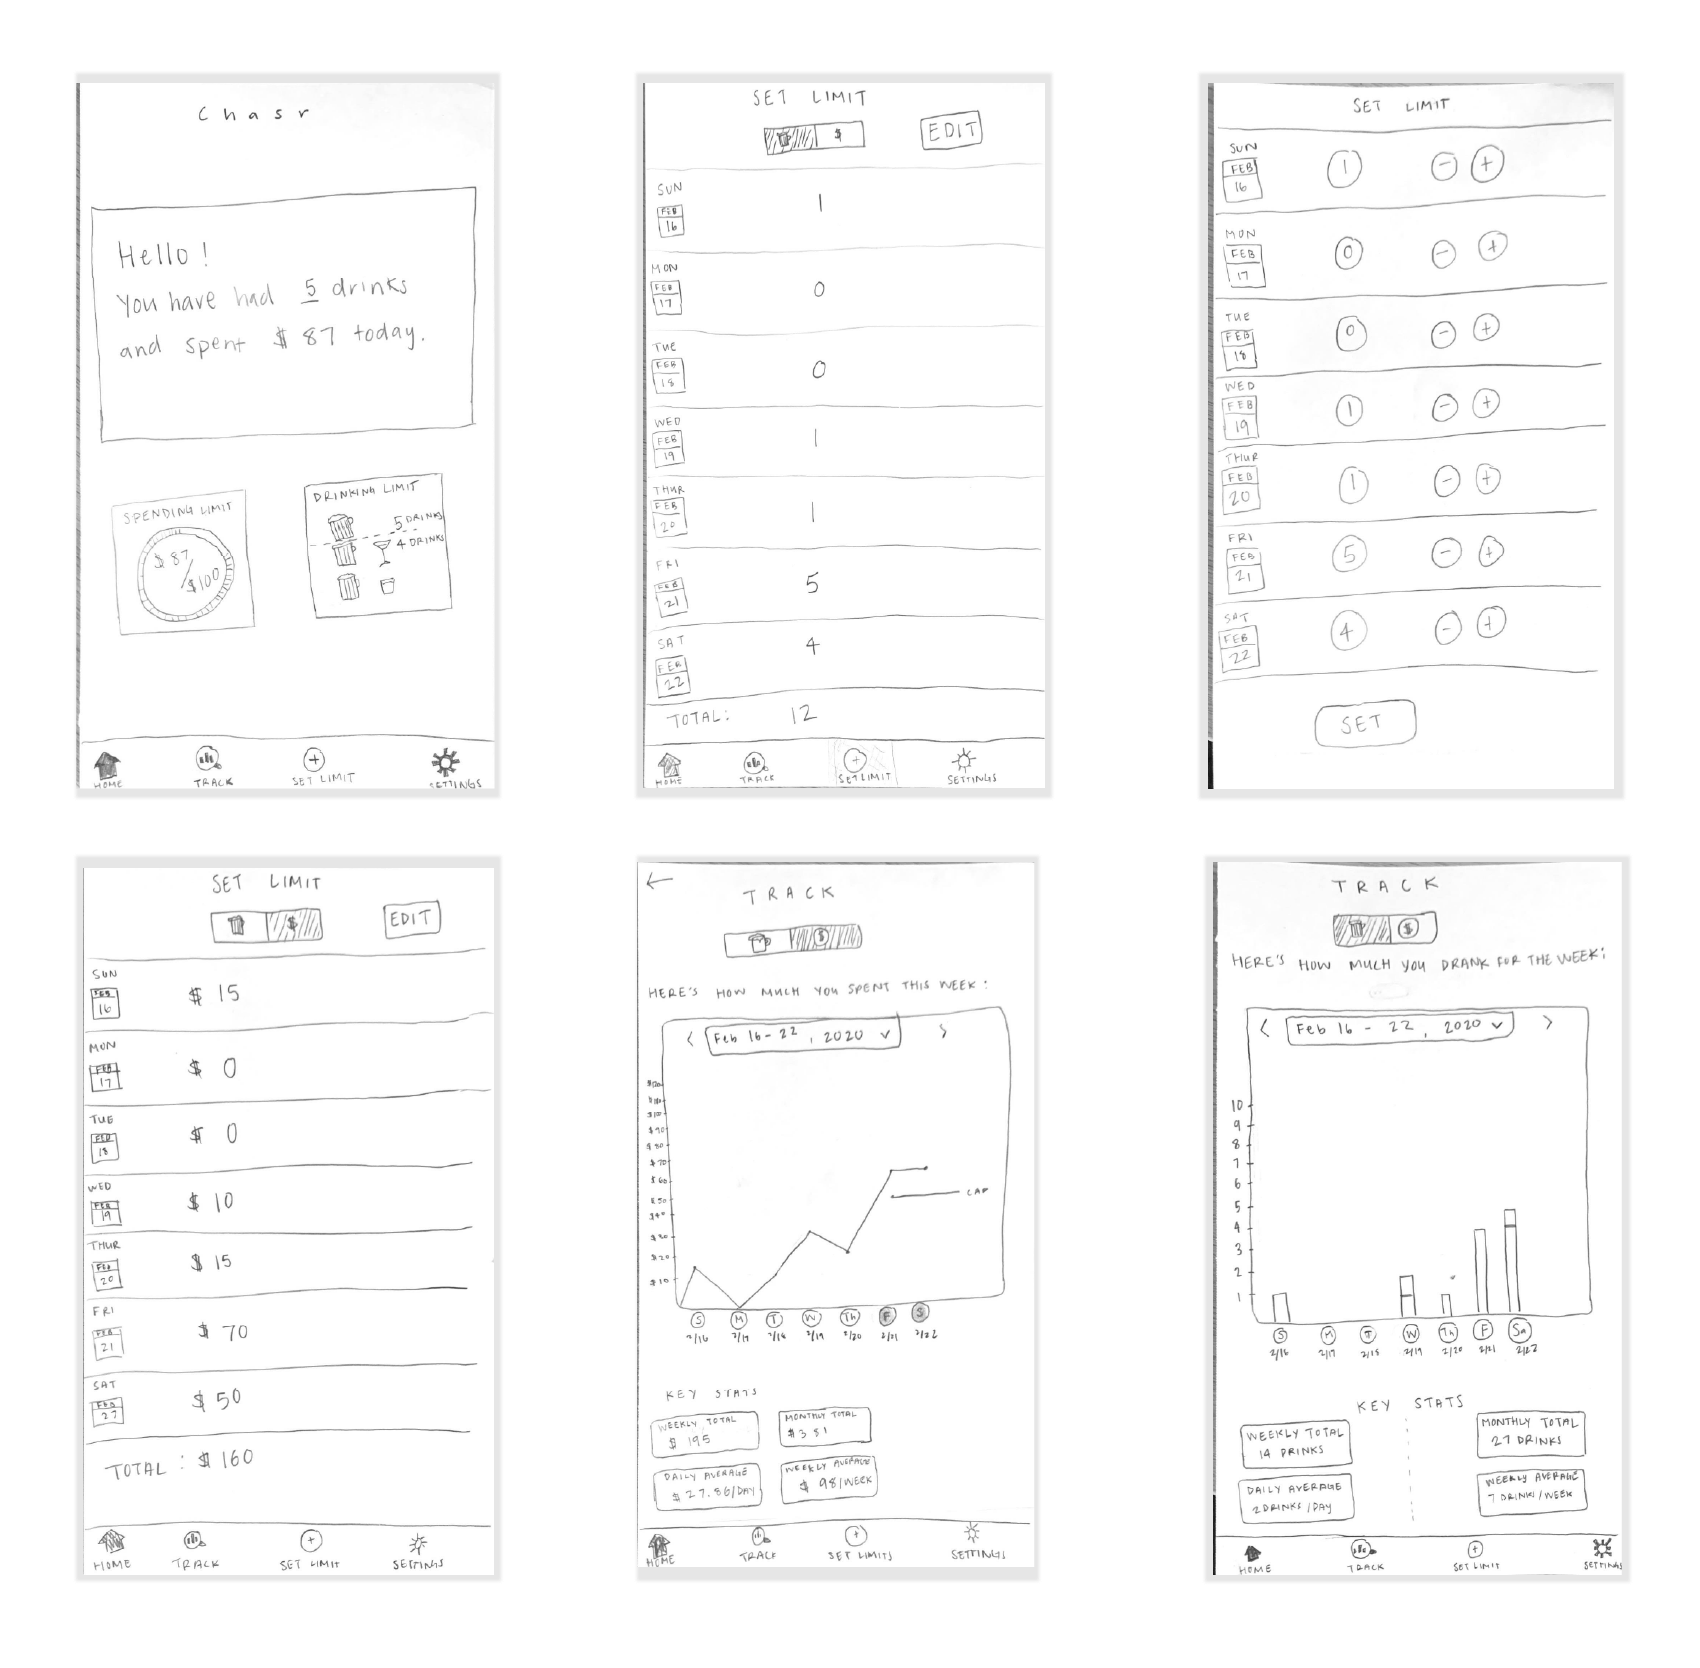 Chasr
Hello!
You have had 5 drinks
and spent $87 today.
SPENDING LIMIT
$87/$100
DRINKING LIMIT
5 DRINKS
4 DRINKS
HOME TRACK SET LIMIT SETTINGS
SET LIMIT
$ EDIT
SUN
FEB
16 1
MON
FEB
17 0
TUE
FEB
18 0
WED
FEB
19 1
THUR
FEB
20 1
FRI
FEB
21 5
SAT
FEB
22 4
TOTAL: 12
HOME TRACK SET LIMIT SETTINGS
SET LIMIT
SUN
FEB
16 1 - +
MON
FEB
17 0 - +
TUE
FEB
18 0 - +
WED
FEB
19 1 - +
THUR
FEB
20 1 - +
FRI
FEB
21 5 - +
SAT
FEB
22 4 - +
SET
SET LIMIT
$ EDIT
SUN
FEB
16 $ 15
MON
FEB
17 $ 0
TUE
FEB
18 $ 0
WED
FEB
19 $ 10
THUR
FEB
20 $ 15
FRI
FEB
21 $ 70
SAT
FEB
$ 50
TOTAL: $ 160
HOME TRACK SET LIMIT SETTINGS
TRACK
$
HERE'S HOW MUCH YOU SPENT THIS WEEK:
< Feb 16-22, 2020 >
$90
$80
$70
$60
$50
$40
$30
$20
$10
CAP
S M T W Th F S
2/16 2/17 2/18 2/19 2/20 2/21 2/22
KEY STATS
WEEKLY TOTAL
$ 195
MONTHLY TOTAL
$351
DAILY AVERAGE
$27.86/DAY
WEEKLY AVERAGE
$ 98/WEEK
HOME TRACK SET LIMITS SETTINGS
TRACK
$
HERE'S HOW MUCH YOU DRANK FOR THE WEEK:
< Feb 16 - 22, 2020 >
10
9
8
7
6
5
4
3
2
1
S M T W Th F Sa
2/16 2/17 2/18 2/19 2/20 2/21 2/22
KEY STATS
WEEKLY TOTAL
14 DRINKS
MONTHLY TOTAL
27 DRINKS
DAILY AVERAGE
2 DRINKS/DAY
WEEKLY AVERAGE
7 DRINK/WEEK
HOME TRACK SET LIMIT SETTINGS